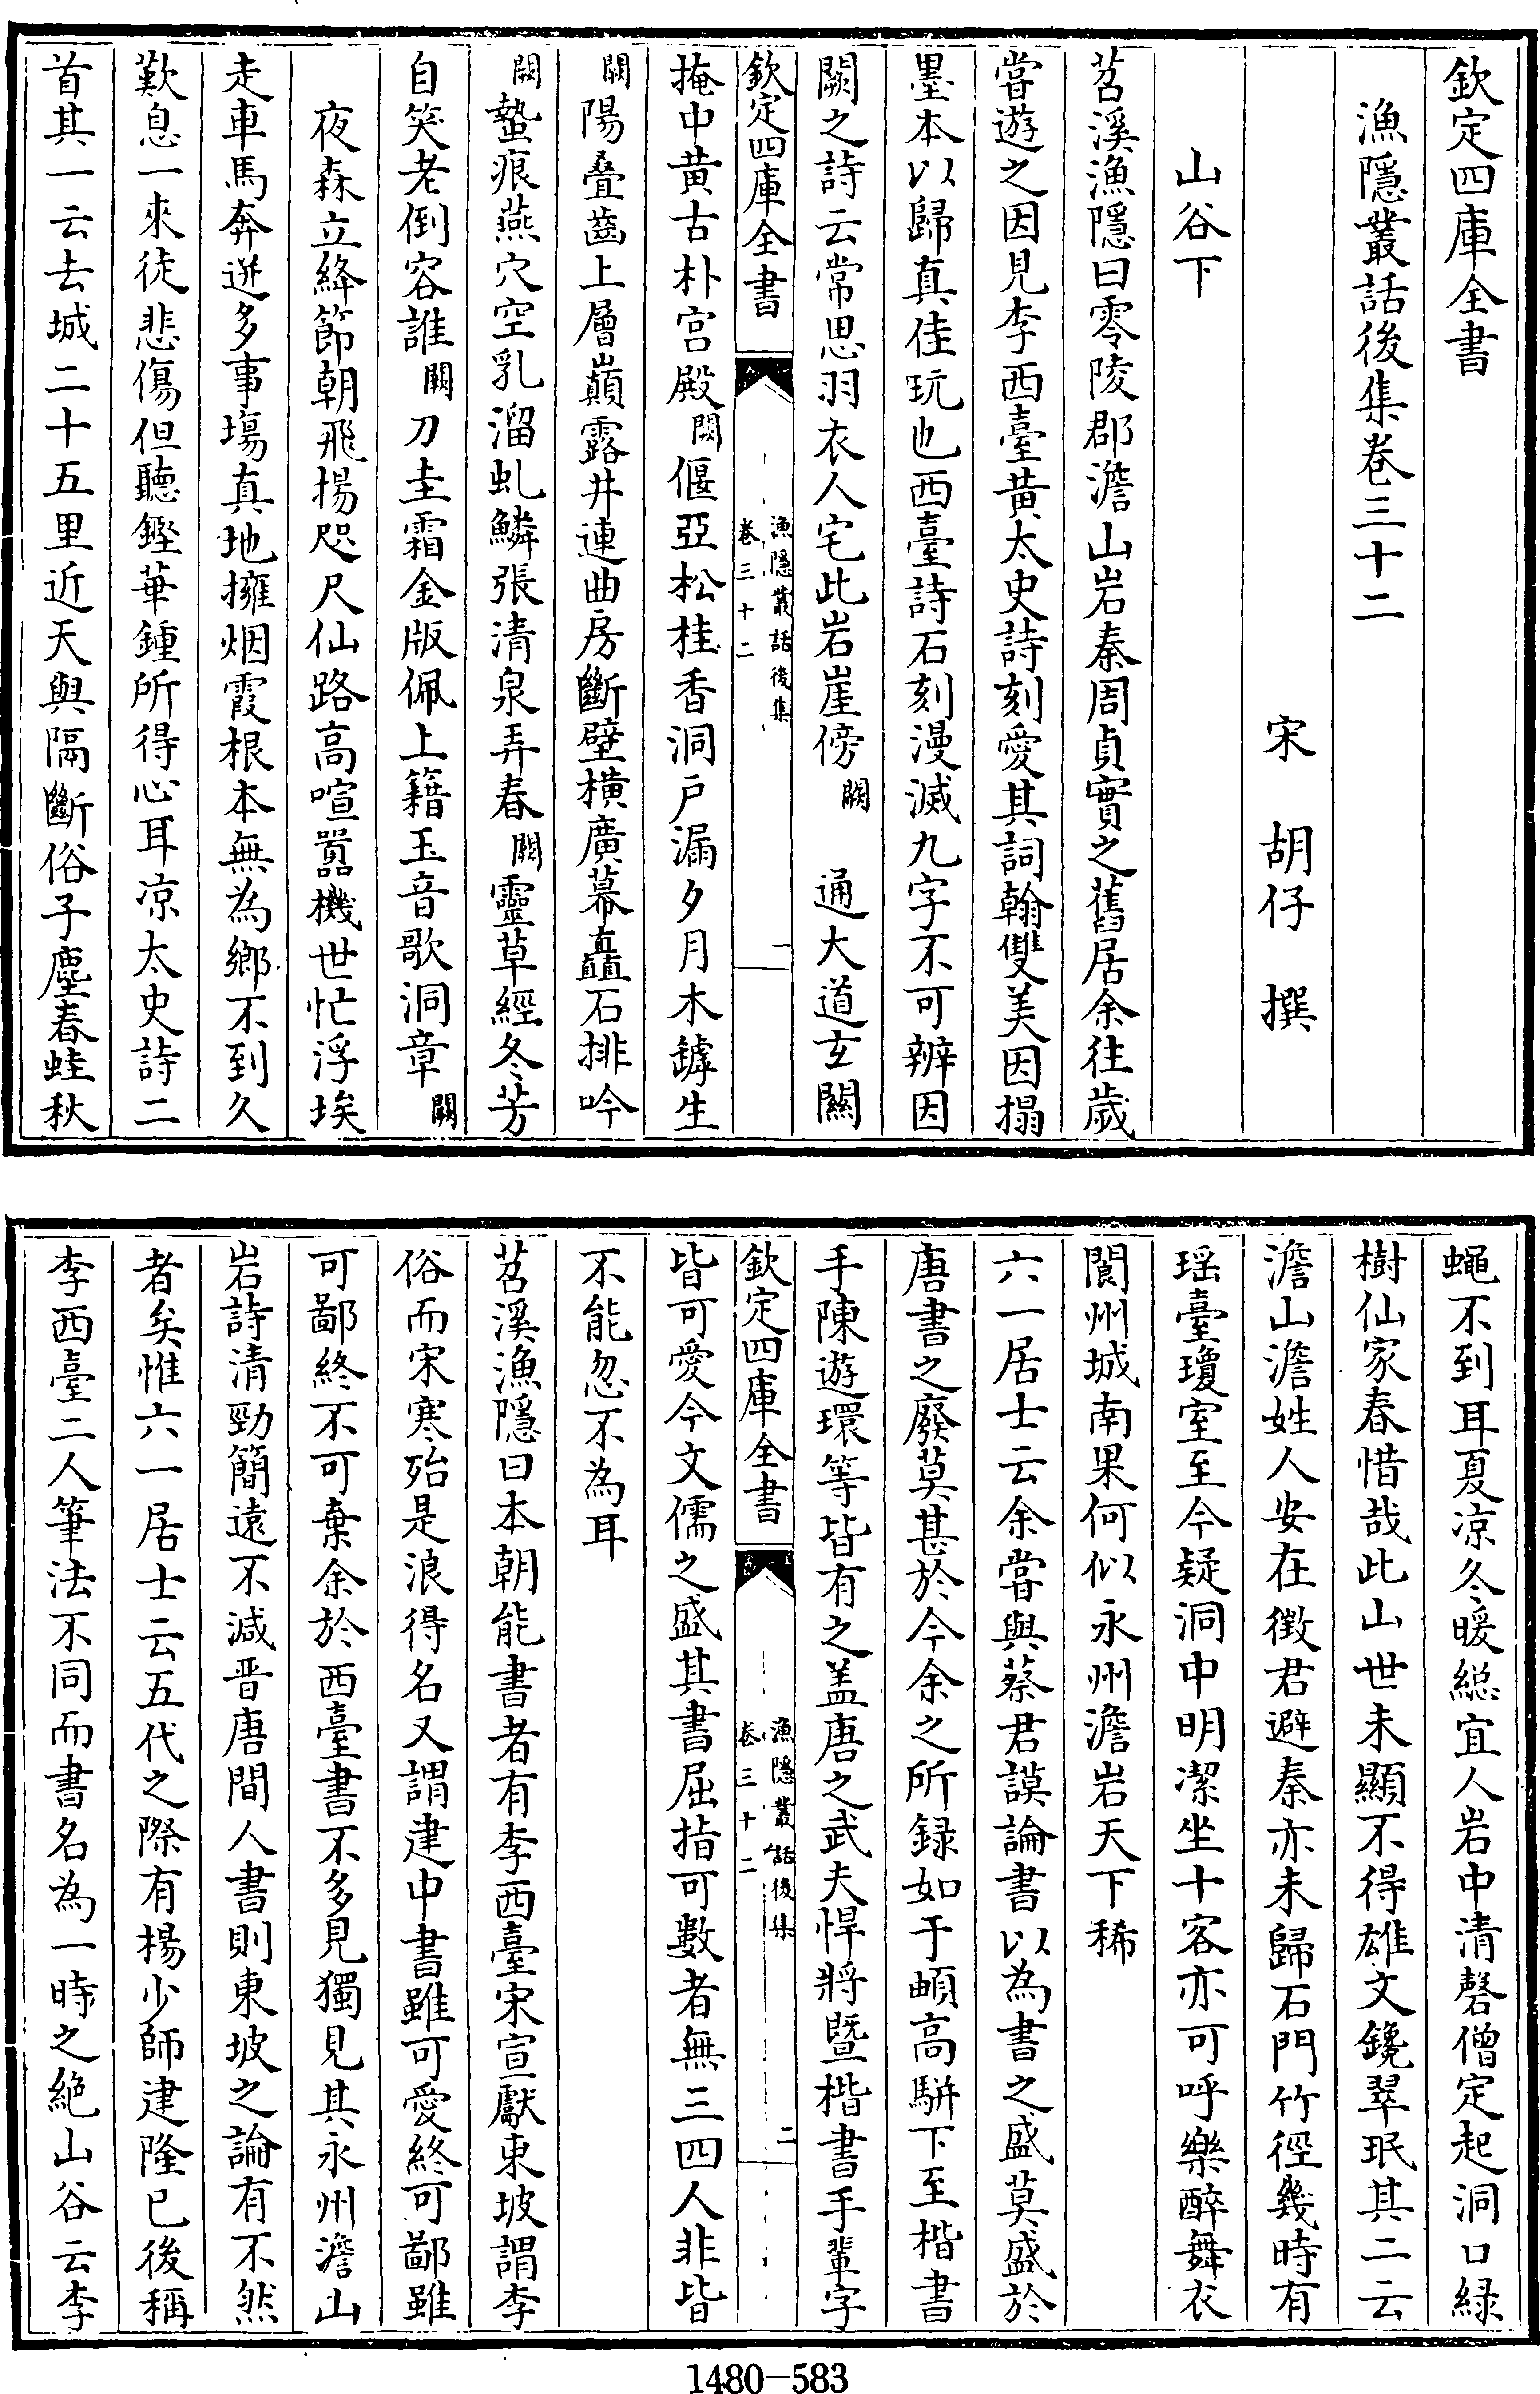 欽定四庫全書
漁隱叢話後集卷三十二
宋 胡仔 撰
山谷下
苕溪漁隱曰零陵郡澹山岩秦周貞實之舊居余往歲
嘗遊之因見李西臺黄太史詩刻愛其詞翰雙美因搨
墨本以歸真佳玩也西臺詩石刻漫滅九字不可辨因
闕之詩云常思羽衣人宅此岩崖傍闕 通大道玄關
欽定四庫全書
漁隱叢話後集
卷三十二
一
掩中黄古朴宫殿闕偃亞松桂香洞戸漏夕月木罅生
闕陽叠齒上層巔露井連曲房斷壁横廣幕矗石排吟
闕蟄痕燕穴空乳溜虬鱗張清泉弄春闕靈草經冬芳
自笑老倒容誰闕刀圭霜金版佩上籍玉音歌洞章闕
夜森立絳節朝飛揚咫尺仙路高喧囂機世忙浮埃
走車馬奔迸多事塲真地擁烟霞根本無為鄉不到久
歎息一來徒悲傷但聽鏗華鍾所得心耳凉太史詩二
首其一云去城二十五里近天與隔斷俗子塵春蛙秋
蠅不到耳夏凉冬暖緫宜人岩中清磬僧定起洞口緑
樹仙家春惜哉此山世未顯不得雄文鑱翠珉其二云
澹山澹姓人安在徴君避秦亦未歸石門竹徑幾時有
瑶臺瓊室至今疑洞中明潔坐十客亦可呼樂醉舞衣
閬州城南果何似永州澹岩天下稀
六一居士云余嘗與蔡君謨論書以為書之盛莫盛於
唐書之廢莫甚於今余之所録如于頔高駢下至楷書
手陳遊環等皆有之盖唐之武夫悍將暨楷書手輩字
欽定四庫全書
漁隱叢話後集
卷三十二
二
皆可愛今文儒之盛其書屈指可數者無三四人非皆
不能忽不為耳
苕溪漁隱曰本朝能書者有李西臺宋宣獻東坡謂李
俗而宋寒殆是浪得名又謂建中書雖可愛終可鄙雖
可鄙終不可棄余於西臺書不多見獨見其永州澹山
岩詩清勁簡遠不減晋唐間人書則東坡之論有不然
者矣惟六一居士云五代之際有楊少師建隆已後稱
李西臺二人筆法不同而書名為一時之絶山谷云李
1480-583